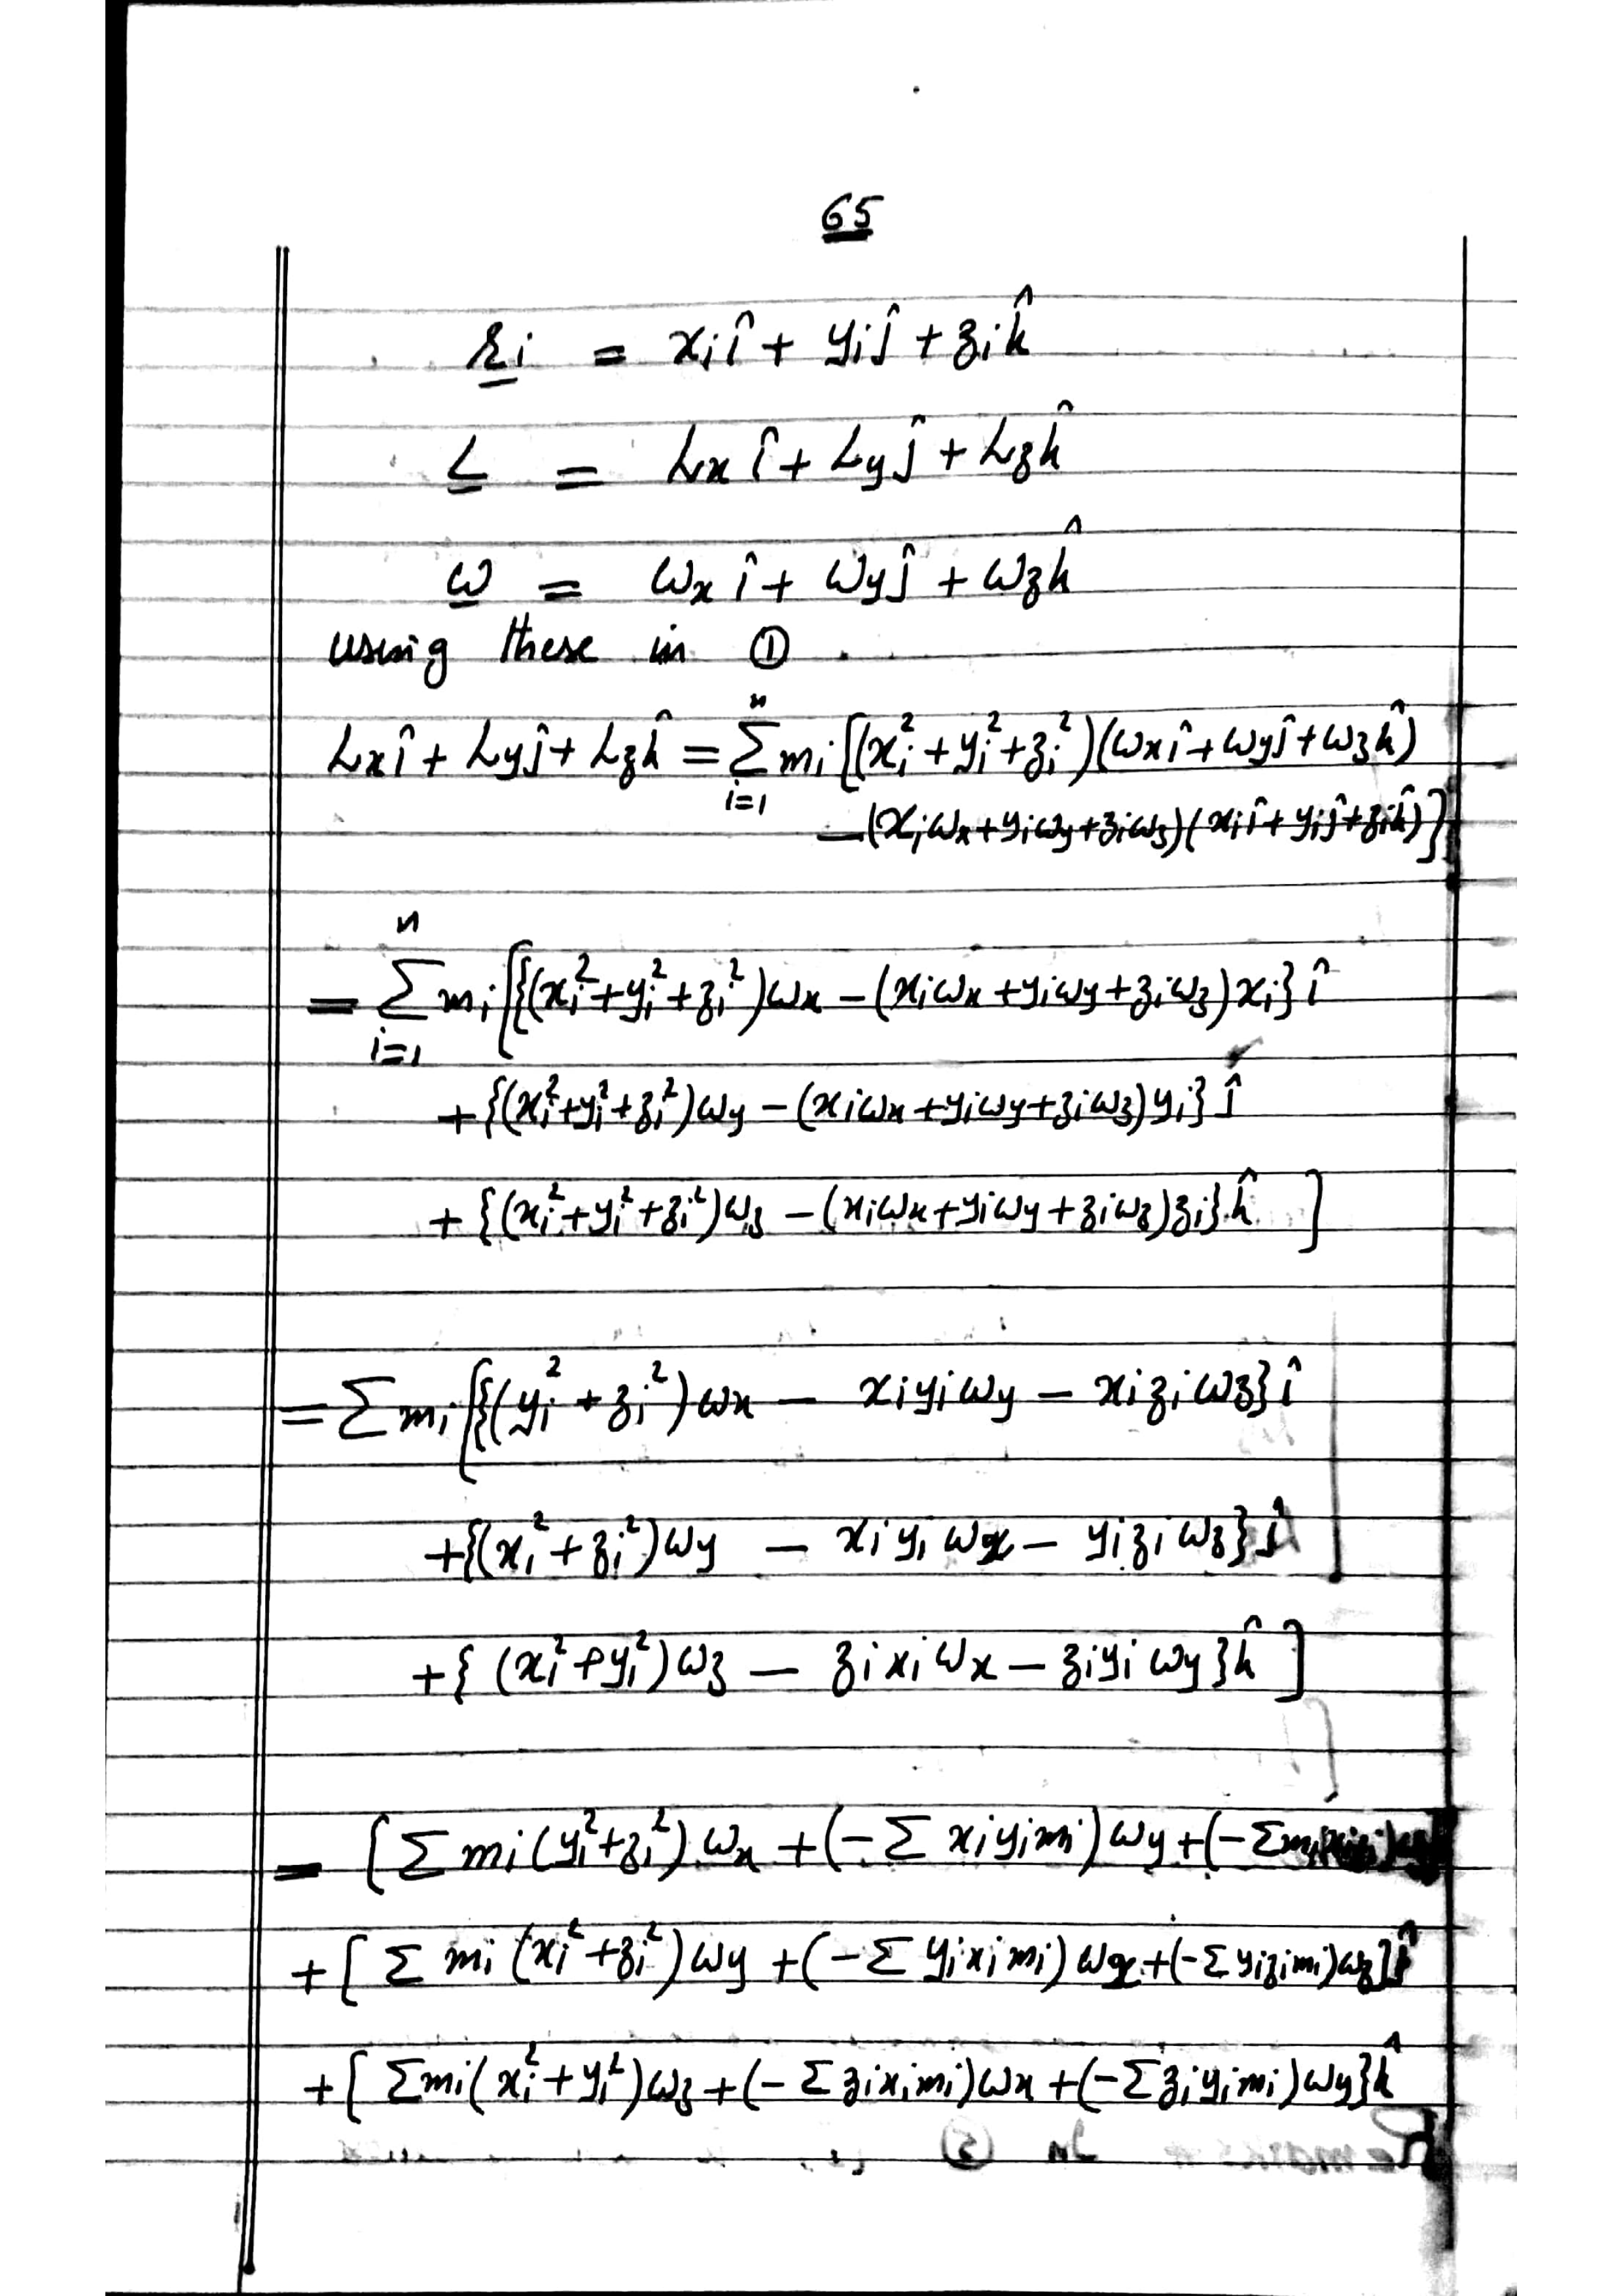 65
r̲i = xi î + yi ĵ + zi k̂
L̲ = Lx î + Ly ĵ + Lz k̂
ω̲ = ωx î + ωy ĵ + ωz k̂
using these in ①
Lx î + Ly ĵ + Lz k̂ = Σ_{i=1}^{n} mi [(xi² + yi² + zi²)(ωx î + ωy ĵ + ωz k̂)
– (xiωx + yiωy + ziωz)(xi î + yi ĵ + zi k̂)]
= Σ_{i=1}^{n} mi [{(xi² + yi² + zi²)ωx – (xiωx + yiωy + ziωz)xi} î
+ {(xi² + yi² + zi²)ωy – (xiωx + yiωy + ziωz)yi} ĵ
+ {(xi² + yi² + zi²)ωz – (xiωx + yiωy + ziωz)zi} k̂ ]
= Σ mi [{(yi² + zi²)ωx – xiyiωy – xiziωz} î
+ {(xi² + zi²)ωy – xiyiωx – yiziωz} ĵ
+ {(xi² + yi²)ωz – zixiωx – ziyiωy} k̂ ]
= [Σ mi(yi² + zi²)ωx + (–Σ xiyimi)ωy + (–Σmi
+ [Σ mi(xi² + zi²)ωy + (–Σ yiximi)ωx + (–Σ yizimi)ωz] ĵ
+ [Σmi(xi² + yi²)ωz + (–Σ ziximi)ωx + (–Σ ziyimi)ωy} k̂